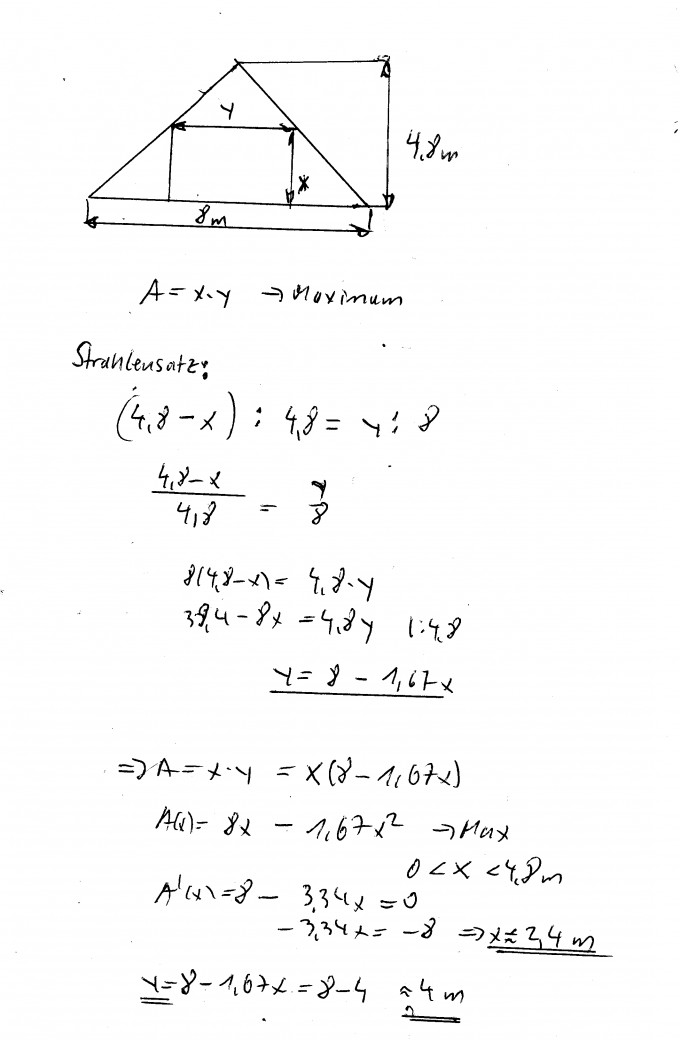 y
4,8m
x
8m
A = x·y → Maximum
Strahlensatz:
(4,8 - x) : 4,8 = y : 8
4,8-x / 4,8 = y / 8
8(4,8-x) = 4,8·y
38,4 - 8x = 4,8y |:4,8
y = 8 - 1,67x
⇒ A = x·y = x(8 - 1,67x)
A(x) = 8x - 1,67x² → Max
0 < x < 4,8m
A'(x) = 8 - 3,34x = 0
-3,34x = -8 ⇒ x ≈ 2,4 m
y = 8 - 1,67x = 8 - 4 ≈ 4 m